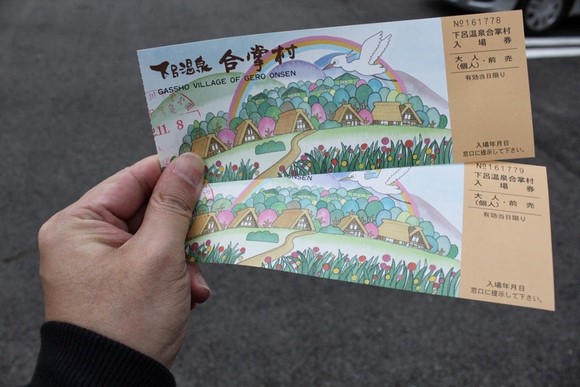 下呂温泉 合掌村
GASSHO VILLAGE OF GERO ONSEN
11. 8
№161778
下呂温泉合掌村
入場券
大人
(個人)・前売
有効当日限り
入場年月日
窓口に提示して下さい。
ONSEN
№161779
下呂温泉合掌村
入場券
大人
(個人)・前売
有効当日限り
入場年月日
窓口に提示して下さい。